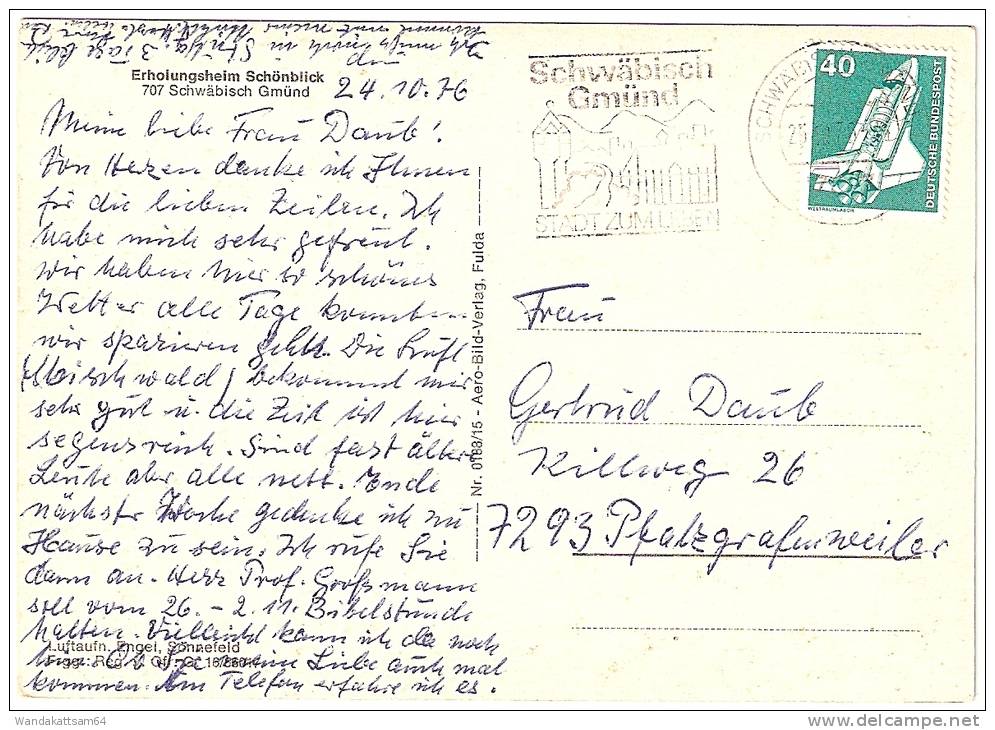 Erholungsheim Schönblick
707 Schwäbisch Gmünd
24.10.76
Meine liebe Frau Daub!
Von Herzen danke ich Ihnen
für die lieben Zeilen. Ich
habe mich sehr gefreut.
Wir haben hier so schönes
Wetter alle Tage konnten
wir spazieren gehn. Die Luft
(Mischwald) bekommt mir
sehr gut u. die Zeit ist hier
segensreich. Sind fast älter
Leute aber alle nett. Ende
nächster Woche gedenke ich zu
Hause zu sein. Ich rufe Sie
dann an. Herr Prof. Großmann
soll vom 26. - 2.11. Bibelstunde
halten. Vielleicht kann ich da noch
Ob Sie meine Liebe auch mal
kommen. Am Telefon erfahre ich es.
Luftaufn. Engel, Sonnefeld
Ich muß noch in Stuttg. 3 Tage
Nr. 0188/15 - Aero-Bild-Verlag, Fulda
Schwäbisch
Gmünd
STADT ZUM LEBEN
SCHWÄBISCH
40
DEUTSCHE BUNDESPOST
WELTRAUMLABOR
Frau
Gertrud Daub
Killweg 26
7293 Pfalzgrafenweiler
Wandakattsam64
delcampe.net